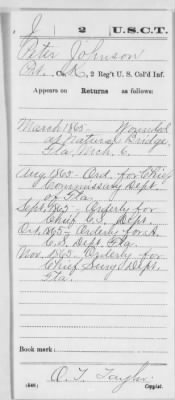 J | 2 | U.S.C.T.
Peter Johnson
Pvt., Co. K, 2 Reg't U. S. Col'd Inf.
Appears on Returns as follows:
March 1865 Wounded
at Natural Bridge,
Fla. Mch. 6.
Aug 1865 - Ord. for Chief
Commissary Dept.
of Fla.
Sept. 1865 - Orderly for
Chief C.S. Dept.
Oct. 1865 - Orderly for
C.S. Dept. Fla.
Nov. 1865 - Orderly for
Chief Dept.
Fla.
Book mark:
O. T. Taylor
(546) Copyist.